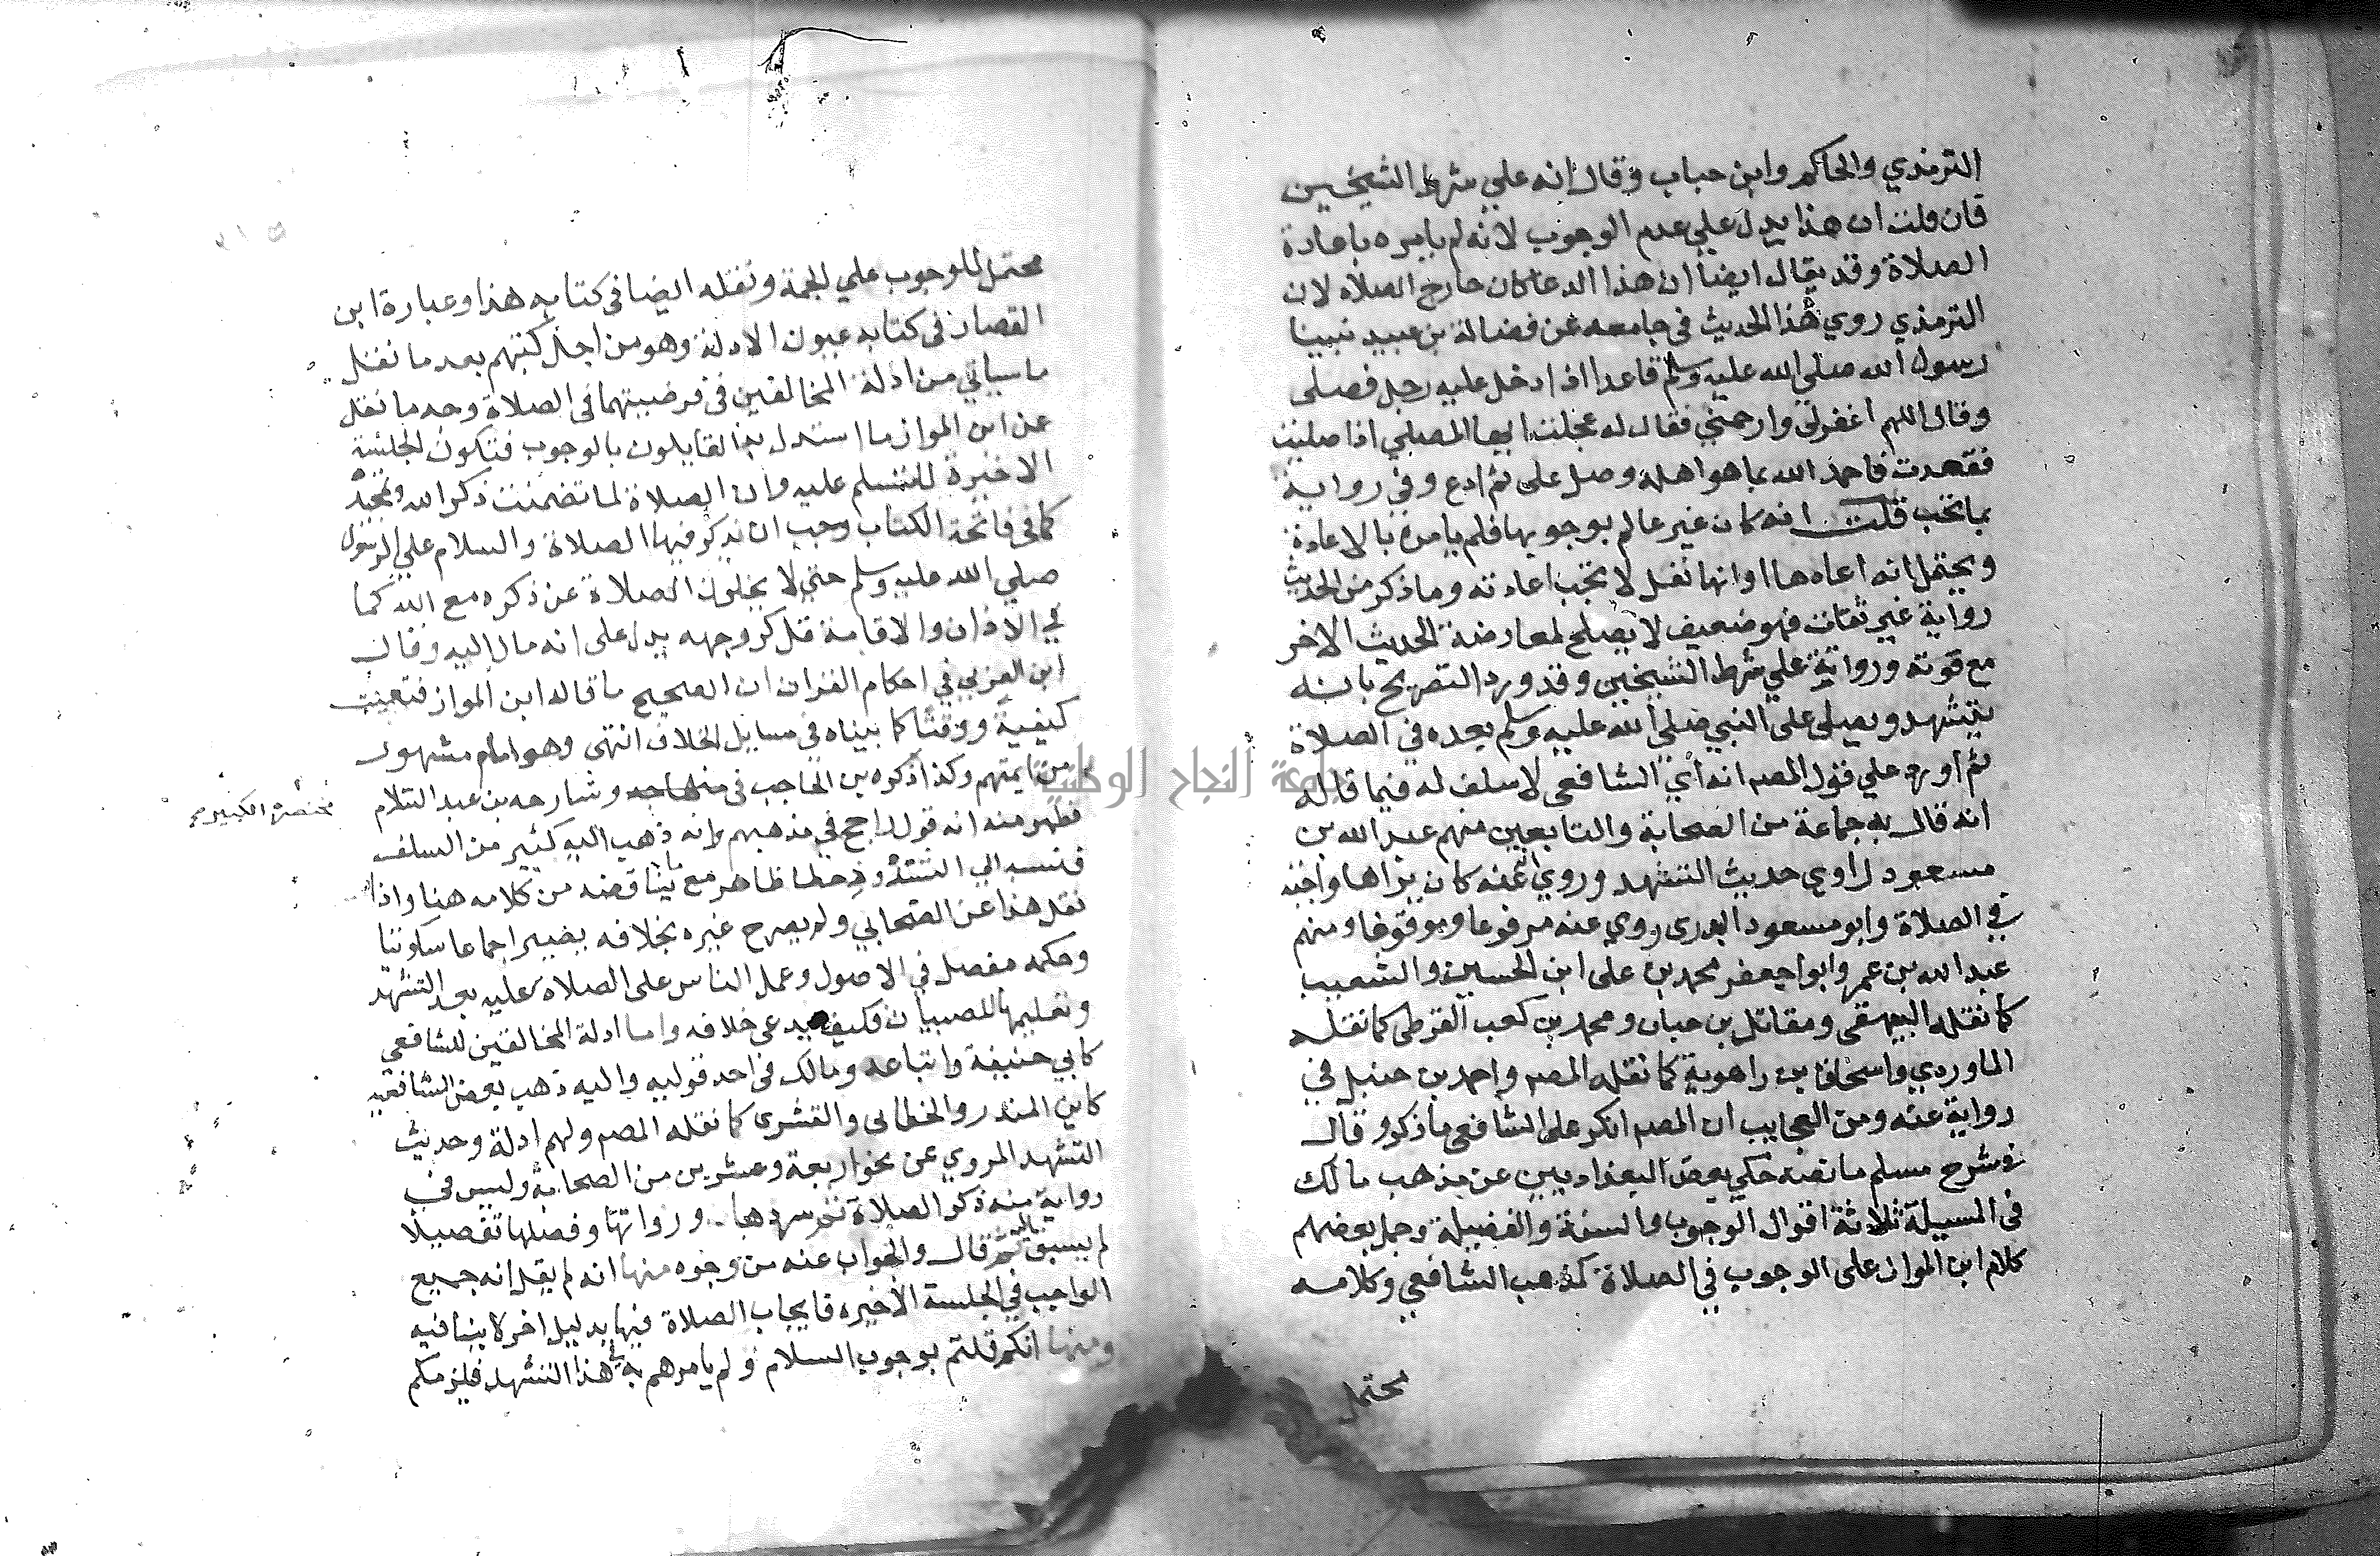 الترمذي والحاكم وابن حبان وقال انه علي شرط الشيخين
فان قلت ان هذا يدل علي عدم الوجوب لانه لم يامره باعادة
الصلاة وقد يقال ايضا ان هذا الدعا كان خارج الصلاه لان
الترمذي روي هذا الحديث في جامعه عن فضالة بن عبيد بيننا
رسول الله صلي الله عليه وسلم قاعدا اذ ادخل عليه رجل فصلى
وقال اللهم اغفرلي وارحمني فقال له عجلت ايها المصلي اذا صليت
فقعدت فاحمد الله بما هو اهله وصل على ثم ادع وفي رواية
بما تحب قلت انه كان غير عالم بوجوبها فلم يامره بالاعادة
ويحتمل انه اعادها او انها نفل لا تجب اعادته وما ذكر من الحديث
رواية غير ثقات فهو ضعيف لا يصلح لمعارضة الحديث الاخر
مع قوته ورواية علي شرط الشيخين وقد ورد التصريح بانه
يتشهد ويصلي على النبي صلي الله عليه وسلم بعده في الصلاة
ثم اورد علي قول المصه انه اي الشافعي لا سلف له فيما قاله
انه قال به جماعة من الصحابة والتابعين منهم عبد الله بن
مسعود راوي حديث التشهد وروي عنه كان يراها واجبه
في الصلاة وابو مسعود البدرى روي عنه مرفوعا وموقوفا ومنهم
عبد الله بن عمر وابو اجعفر محمد بن على ابن الحسين والشعبي
كما نقله البيهقى ومقاتل بن حبان ومحمد بن كعب القرظى كما نقله
الماوردي واسحاق بن راهوية كما نقله المصه واحمد بن حنبل في
رواية عنه ومن العجايب ان المصه انكر على الشافعي ما ذكر وقال
في شرح مسلم ما نصه حكي بعض البغداديين عن مذهب مالك
في المسيلة ثلاثة اقوال الوجوب والسنة والفضيلة وحمل بعضهم
كلام ابن المواز على الوجوب في الصلاة كمذهب الشافعي وكلامه
محتمل
محتمل للوجوب علي الجملة ونقله ايضا في كتابه هذا وعبارة ابن
القصار في كتابه عيون الادلة وهو من اجل كتبهم بعد ما نقل
ما سياتي من ادلة المخالفين في فرضيتهما في الصلاة وحد ما نقل
عن ابن المواز ما استدل به القايلون بالوجوب فتكون الجلسة
الاخيرة للتسلم عليه وان الصلاة لما تضمنت ذكر الله وتمجده
كما في فاتحة الكتاب وجب ان يذكر فيها الصلاة والسلام علي الرسول
صلي الله عليه وسلم حتي لا يخلون الصلاة عن ذكره مع الله كما
في الاذان والاقامة قل كر وجهه يدل على انه مال اليه وقال
ابن العربي في احكام القران ان الصحيح ما قاله ابن المواز فتعينت
كيفية ووقتا كما بيناه في مسايل الخلاف انتهى وهو امام مشهور
من ايمتهم وكذا ذكره بن الحاجب في منهاجه وشارحه بن عبد السلام
مختصره الكبير
فظهر منه انه قول راجح في مذهبهم وانه ذهب اليه كثير من السلف
فنسبه الي الشذوذ خطا ظاهر مع تناقضه من كلامه هنا واذا
نقل هذا عن الصحابي ولم يصرح غيره بخلافه يصير اجماعا سكوتيا
وحكمه مفصل في الاصول وعمل الناس على الصلاة عليه بعد التشهد
وتعليمها للصبيان فكيف يدعى خلافه واما ادلة المخالفين للشافعي
كابي حنيفة واتباعه ومالك في احد قوليه واليه ذهب بعض الشافعيه
كابن المنذر والخطابى والقشرى كما نقله المصه ولهم ادلة وحديث
التشهد المروي عن نحو اربعة وعشرين من الصحابة وليس في
رواية منه ذكر الصلاة ثم سردها ورواتها وفضلها تفصيلا
لم يسبق اليه ثم قال والجواب عنه من وجوه منها انه لم يقل انه جميع
الواجب في الجلسة الاخيره فايجاب الصلاة فيها بدليل اخر لا ينافيه
ومنها انكم قلتم بوجوب السلام ولم يامرهم به في هذا التشهد فلزمكم